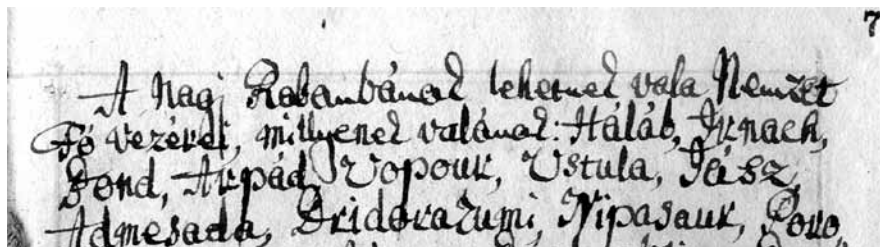 7
A Nagj Rabanbánok lehetnek vala Nemzet
Fő vezérei, millyenek valának: Háláb, Irnach,
Bond, Árpád, Vopour, Ustula, Jász,
Admesada, Dridorazumi, Nipasaur, Poro,